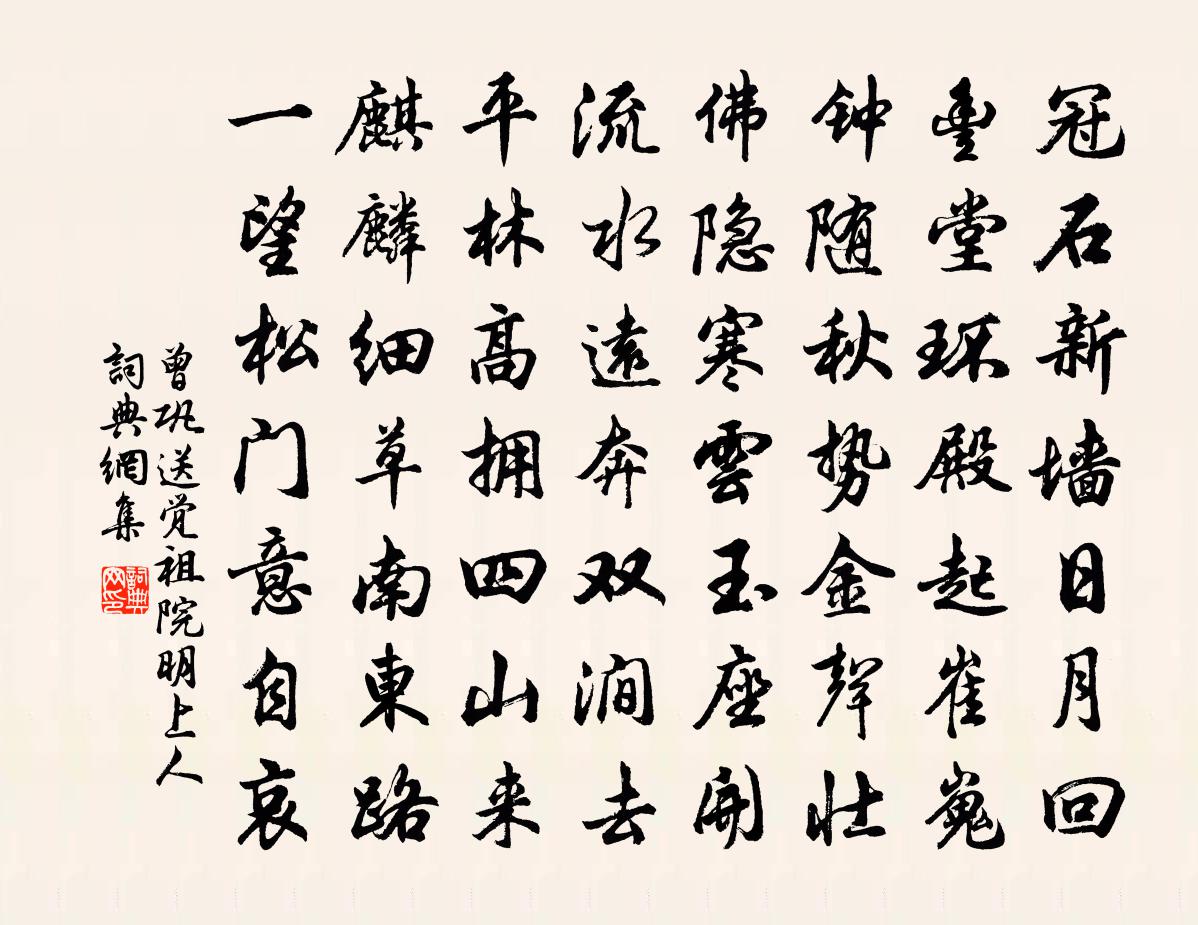 冠石新墙日月回
豊堂环殿起崔嵬
钟随秋势金聲壮
佛隐寒雲玉座開
流水遠奔双澗去
平林高拥四山来
麒麟细草南東路
一望松门意自哀
曾巩送觉祖院明上人
詞典網集
詞典網印